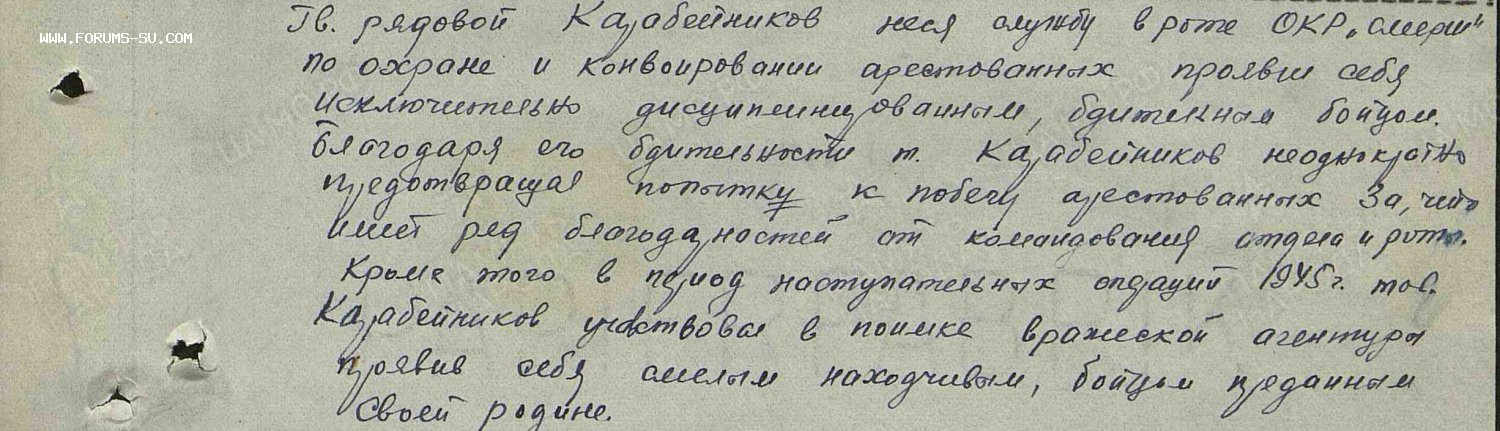 WWW.FORUMS-SU.COM
Гв. рядовой Карабейников неся службу в роте ОКР "Смерш"
по охране и конвоировании арестованных проявил себя
исключительно дисциплинированным, бдительным бойцом.
Благодаря его бдительности т. Карабейников неоднократно
предотвращал попытку к побегу арестованных За, что
имеет ряд благодарностей от командования отдела и роты.
Кроме того в период наступательных операций 1945 г. тов.
Карабейников участвовал в поимке вражеской агентуры
проявив себя смелым находчивым, бойцом преданным
своей родине.